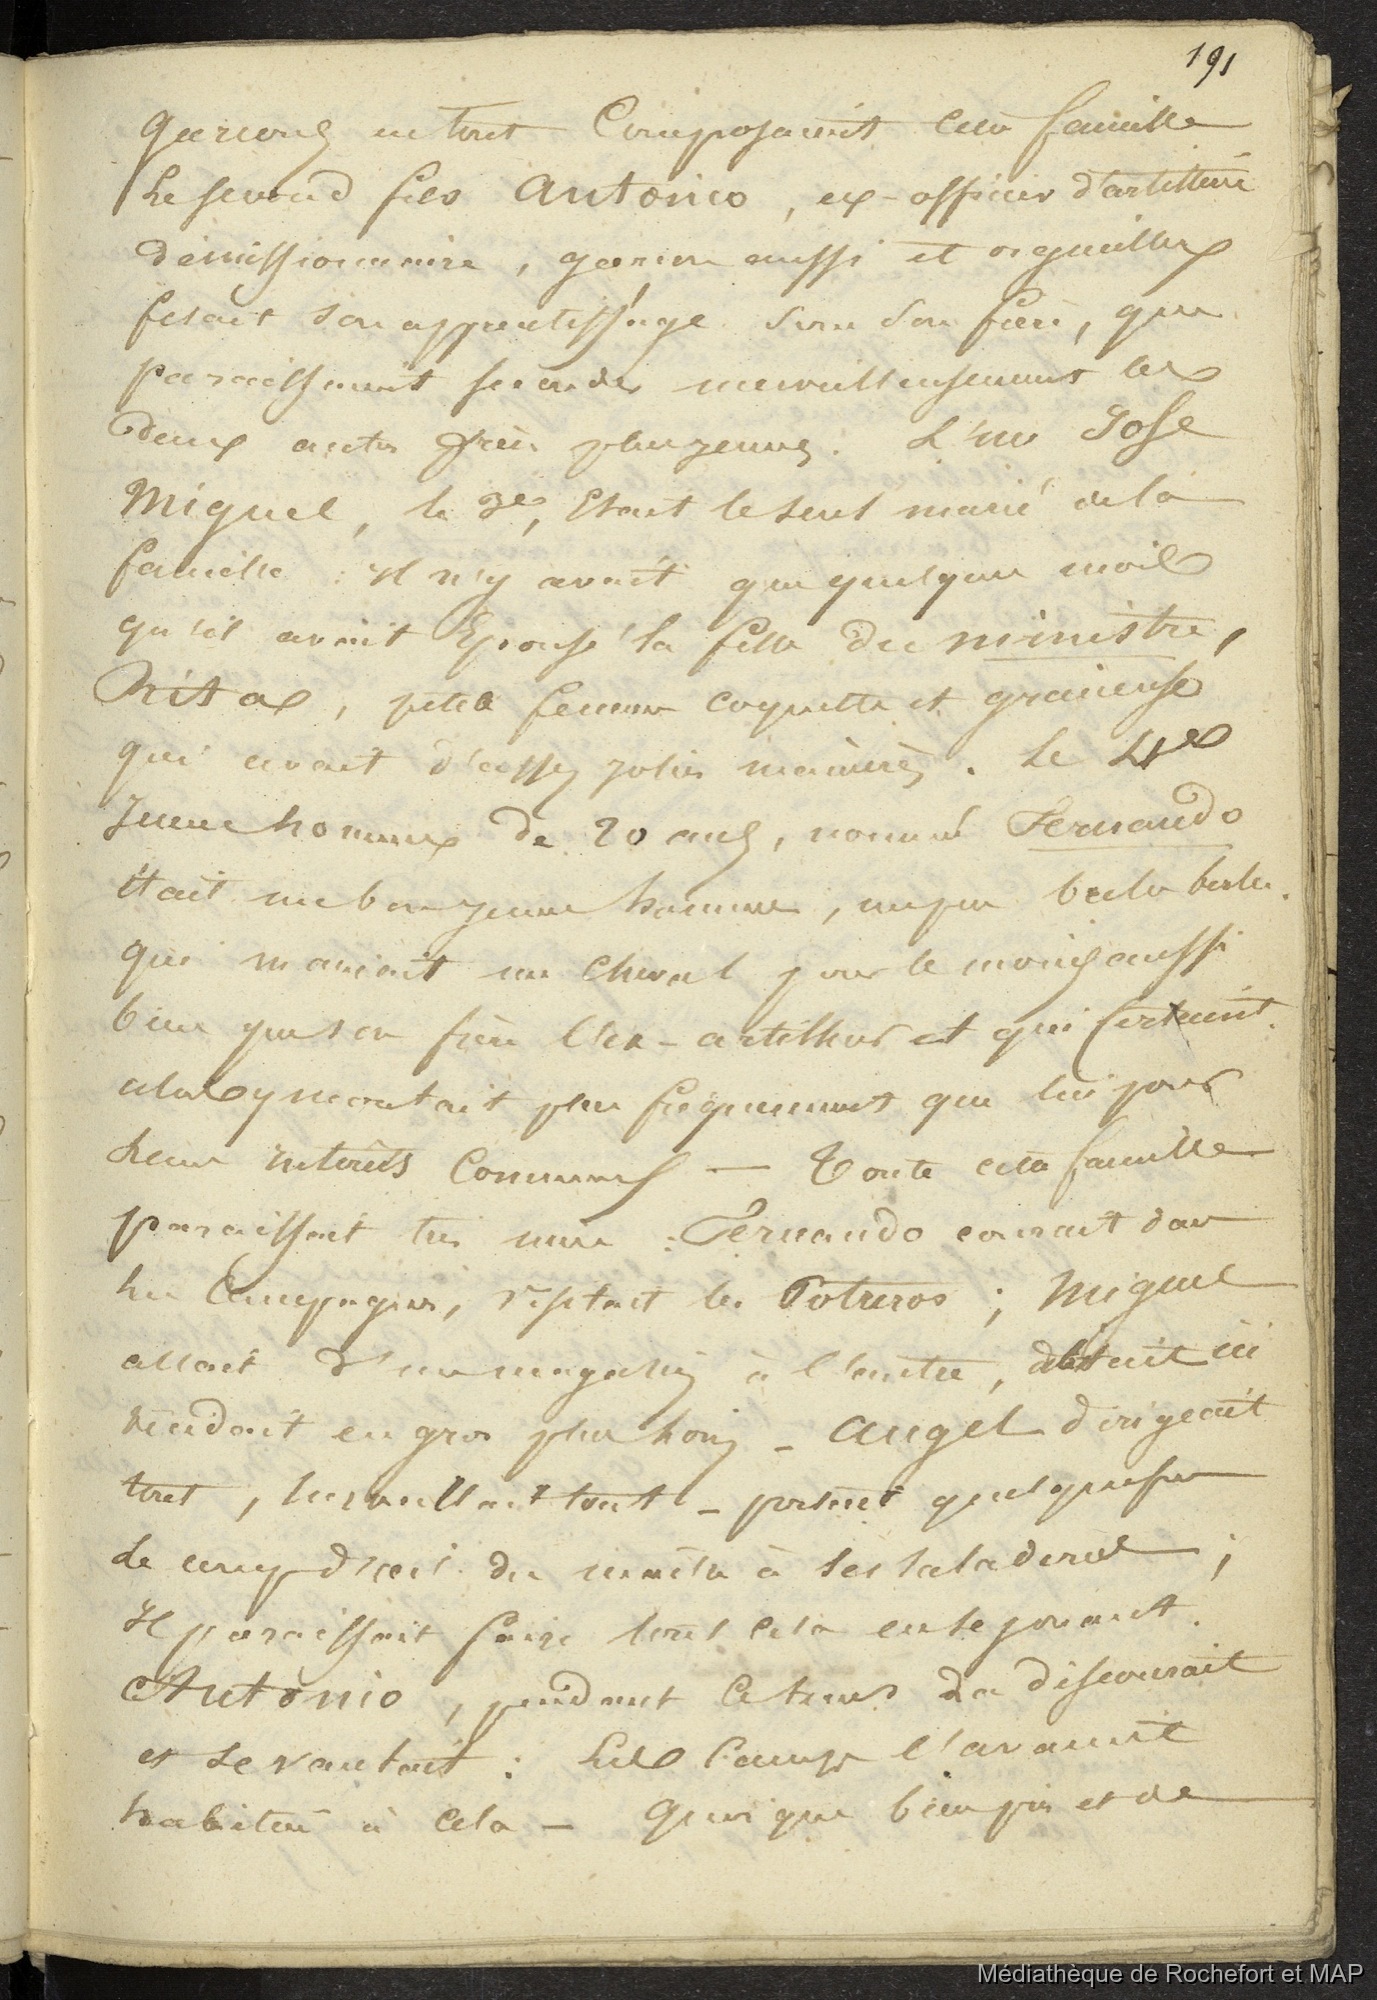 191
garçons en tout composaient cette famille
Le second fils Antonio, ex-officier d'artillerie
démissionnaire, garçon aussi et orgueilleux
fesait son apprentissage sous son frère, que
paraissaient seconder merveilleusement les
deux autres frères plus jeunes. L'un José
Miguel, le 3e, était le seul marié de la
famille : il n'y avait que quelques mois
qu'il avait épousé la fille du ministre,
Rita, petite femme coquette et gracieuse
qui avait d'assez jolies manières. Le 4e
jeune homme de 20 ans, nommé Fernando
était un bon jeune homme, un peu
qui maniait un cheval pour le moins aussi
bien que son frère l'ex-artilleur et qui certaint.
montait plus fréquemment que lui pour
leurs intérêts communs — Toute cette famille
paraissait très unie : Fernando courait dans
les campagnes, visitait les Potreros ; Miguel
allait d'un magasin à l'autre, débitait ici
vendait en gros plus loin — Angel dirigeait
tout, surveillait tout — portant quelquefois
le coup d'œil du maître à ses saladeros ;
Il paraissait faire tout cela en se jouant.
Antonio, pendant ce temps là discourait
et se vantait : Les camps l'avaient
habitué à cela — Quoique bien pris et de
Médiathèque de Rochefort et MAP